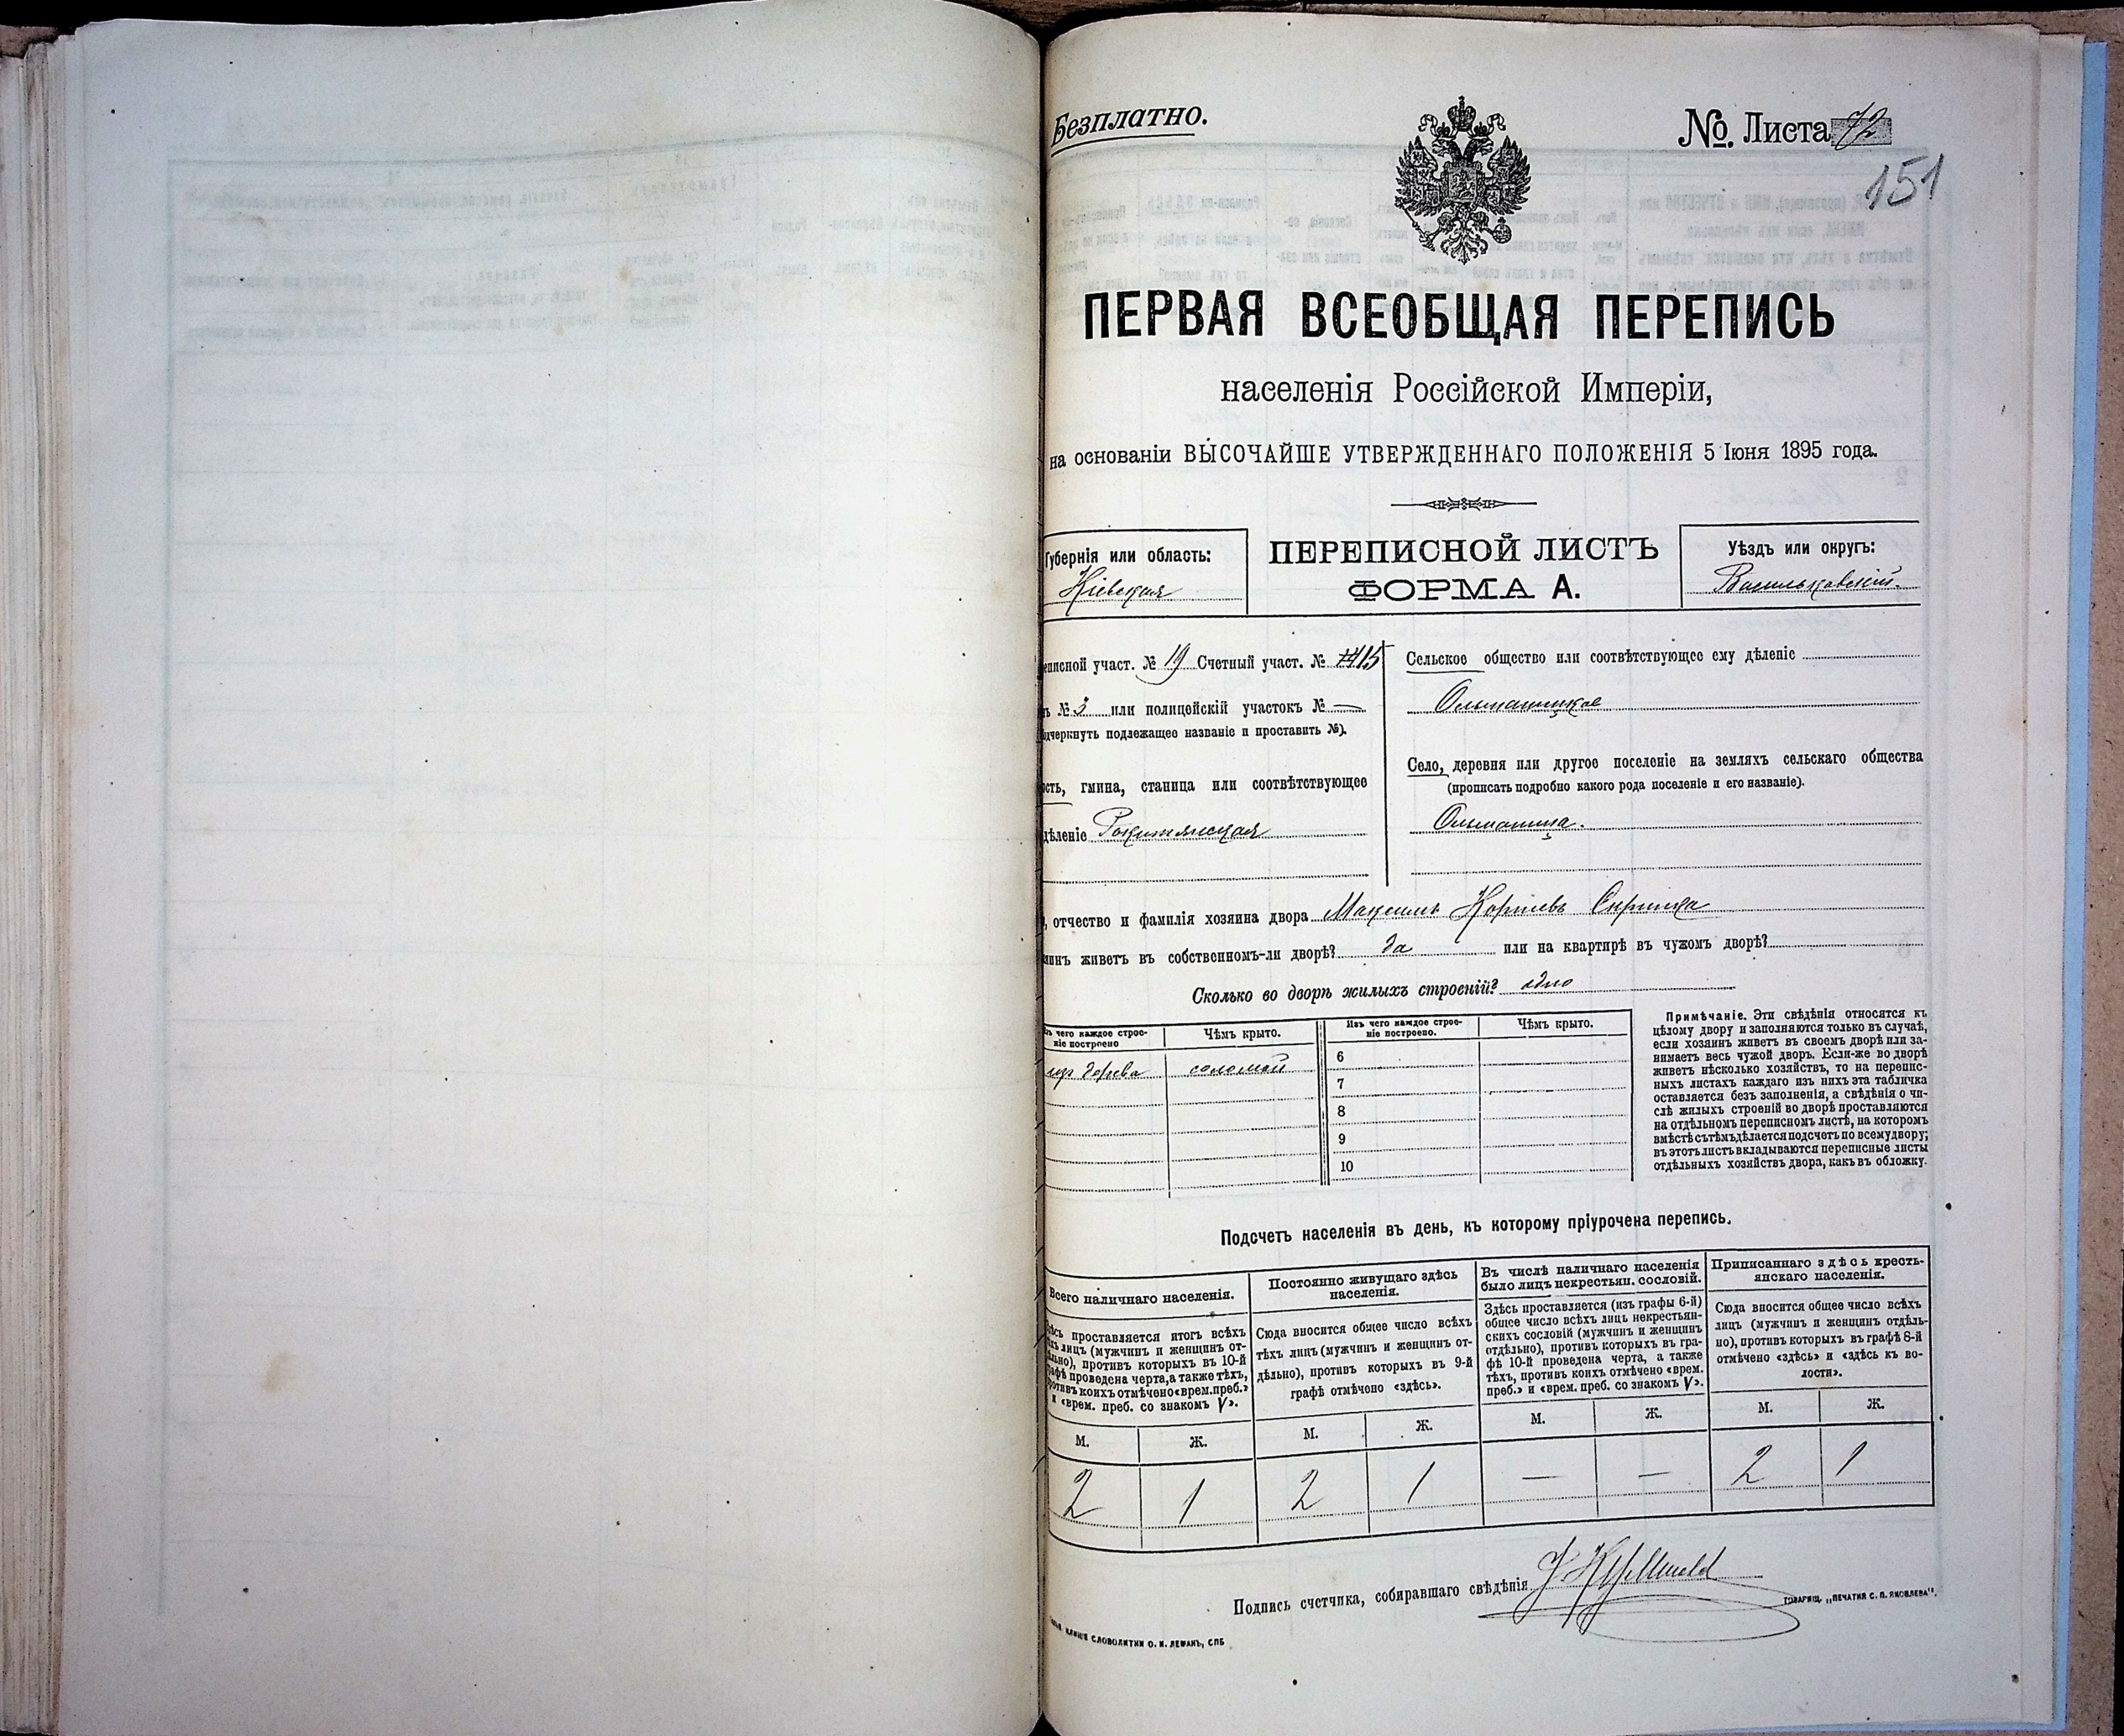 Безплатно.
№ Листа 72
151
ПЕРВАЯ ВСЕОБЩАЯ ПЕРЕПИСЬ
населенія Россійской Имперіи,
на основаніи ВЫСОЧАЙШЕ УТВЕРЖДЕННАГО ПОЛОЖЕНІЯ 5 Іюня 1895 года.
Губернія или область:
Кіевская
ПЕРЕПИСНОЙ ЛИСТЪ
ФОРМА А.
Уѣздъ или округъ:
Васильковскій.
еписной участ. № 19 Счетный участ. № 15
№ 3 или полицейскій участокъ № —
одчеркнуть подлежащее названіе и проставить №).
ость, гмина, станица или соотвѣтствующее
дѣленіе Рокитянская
Сельское общество или соотвѣтствующее ему дѣленіе
Ольшаницкое
Село, деревня или другое поселеніе на земляхъ сельскаго общества
(прописать подробно какого рода поселеніе и его названіе).
Ольшаница.
, отчество и фамилія хозяина двора Максимъ Корніевъ Скрипка
инъ живетъ въ собственномъ-ли дворѣ? да или на квартирѣ въ чужомъ дворѣ?
Сколько во дворѣ жилыхъ строеній? одно
ъ чего каждое строе-
ніе построено
Чѣмъ крыто.
Изъ чего каждое строе-
ніе построено.
Чѣмъ крыто.
изъ дерева соломой
6
7
8
9
10
Примѣчаніе. Эти свѣдѣнія относятся къ
цѣлому двору и заполняются только въ случаѣ,
если хозяинъ живетъ въ своемъ дворѣ или за-
нимаетъ весь чужой дворъ. Если-же во дворѣ
живетъ нѣсколько хозяйствъ, то на перепис-
ныхъ листахъ каждаго изъ нихъ эта табличка
оставляется безъ заполненія, а свѣдѣнія о чи-
слѣ жилыхъ строеній во дворѣ проставляются
на отдѣльномъ переписномъ листѣ, на которомъ
вмѣстѣ съ тѣмъ дѣлается подсчетъ по всему двору;
въ этотъ листъ вкладываются переписные листы
отдѣльныхъ хозяйствъ двора, какъ въ обложку.
Подсчетъ населенія въ день, къ которому пріурочена перепись.
Всего наличнаго населенія.
десь проставляется итогъ всѣхъ
хъ лицъ (мужчинъ и женщинъ от-
ѣльно), противъ которыхъ въ 10-й
рафѣ проведена черта, а также тѣхъ,
ротивъ коихъ отмѣчено «врем. преб.»
и «врем. преб. со знакомъ V».
Постоянно живущаго здѣсь
населенія.
Сюда вносится общее число всѣхъ
тѣхъ лицъ (мужчинъ и женщинъ от-
дѣльно), противъ которыхъ въ 9-й
графѣ отмѣчено «здѣсь».
Въ числѣ наличнаго населенія
было лицъ некрестьян. сословій.
Здѣсь проставляется (изъ графы 6-й)
общее число всѣхъ лицъ некрестьян-
скихъ сословій (мужчинъ и женщинъ
отдѣльно), противъ которыхъ въ гра-
фѣ 10-й проведена черта, а также
тѣхъ, противъ коихъ отмѣчено «врем.
преб.» и «врем. преб. со знакомъ V».
Приписаннаго здѣсь кресть-
янскаго населенія.
Сюда вносится общее число всѣхъ
лицъ (мужчинъ и женщинъ отдѣль-
но), противъ которыхъ въ графѣ 8-й
отмѣчено «здѣсь» и «здѣсь къ во-
лости».
М. Ж. М. Ж. М. Ж. М. Ж.
2 1 2 1 — — 2 1
Подпись счетчика, собиравшаго свѣдѣнія
СЛОВОЛИТНИ О. И. ЛЕМАНЪ, СПБ
ТОВАРИЩ. „ПЕЧАТНЯ С. П. ЯКОВЛЕВА".